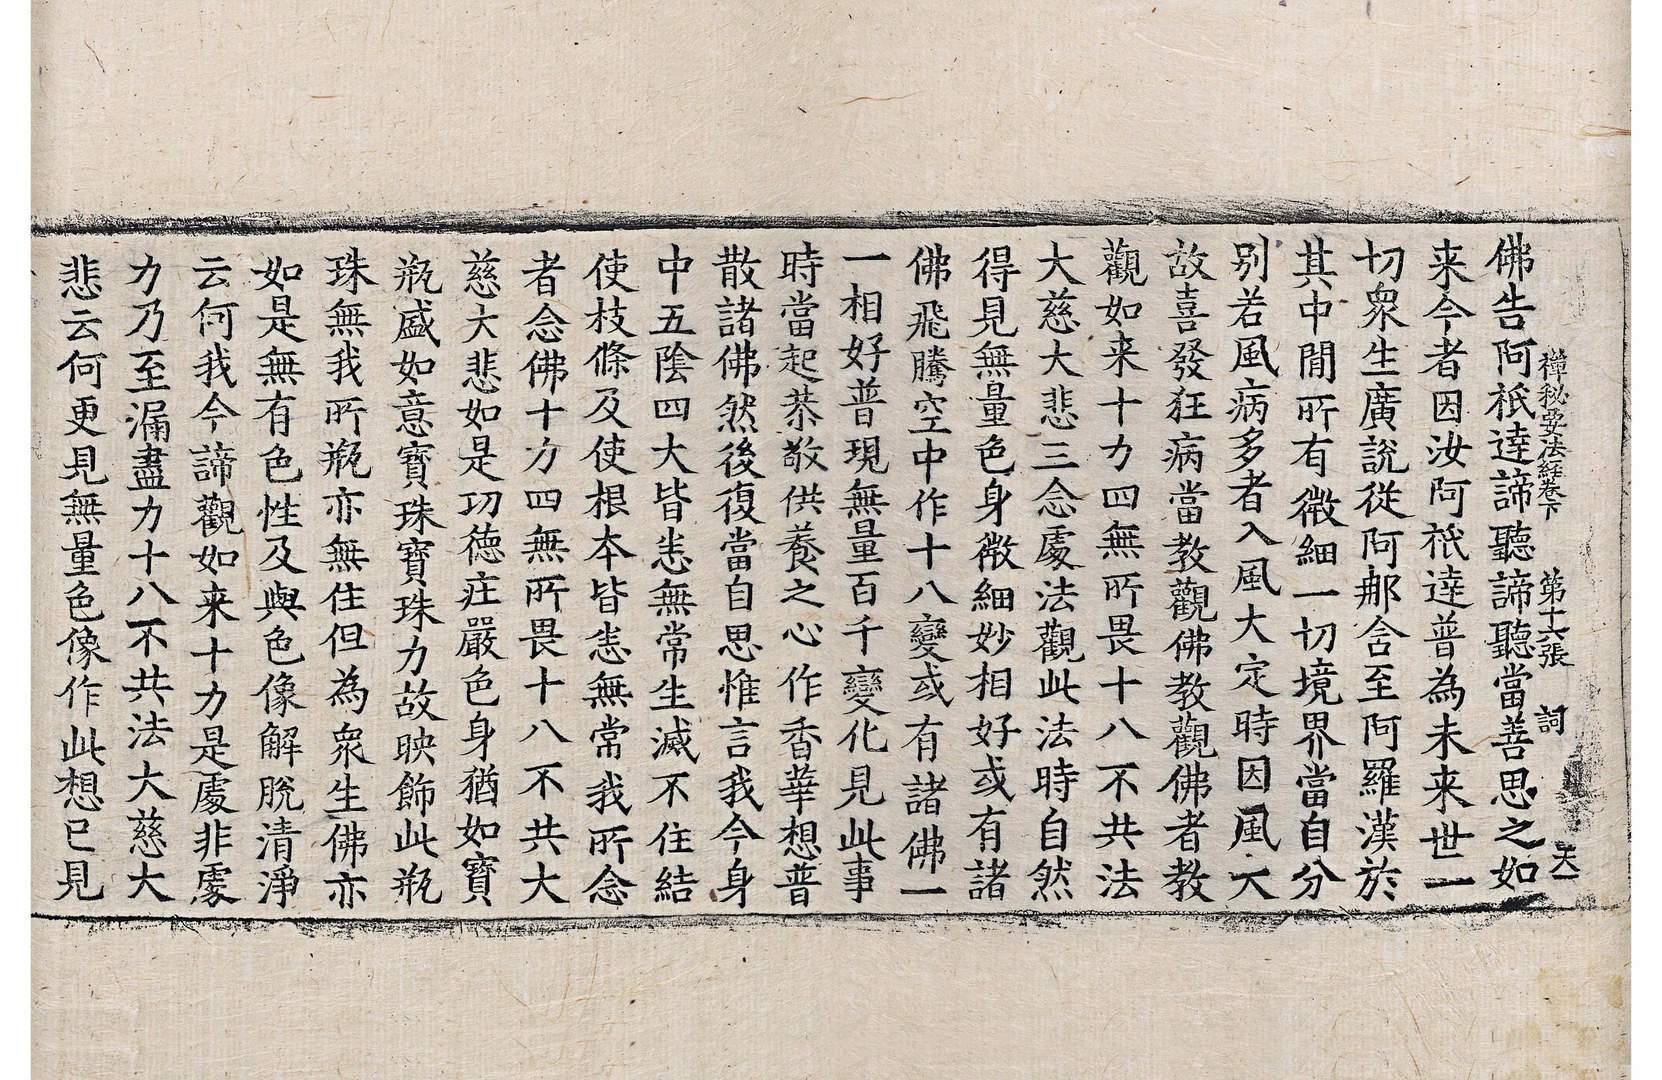 禪秘要法經卷下 第十六張 詞
佛告阿祇逹諦聽諦聽當善思之如
来今者因汝阿祇逹普為未来世一
切衆生廣說從阿那含至阿羅漢於
其中間所有微細一切境界當自分
别若風病多者入風大定時因風大
故喜發狂病當教觀佛教觀佛者教
觀如来十力四無所畏十八不共法
大慈大悲三念處法觀此法時自然
得見無量色身微細妙相好或有諸
佛飛騰空中作十八變或有諸佛一
一相好普現無量百千變化見此事
時當起恭敬供養之心作香華想普
散諸佛然後復當自思惟言我今身
中五陰四大皆悉無常生滅不住結
使枝條及使根本皆悉無常我所念
者念佛十力四無所畏十八不共大
慈大悲如是功德莊嚴色身猶如寶
瓶盛如意寶珠寶珠力故映飾此瓶
珠無我所瓶亦無住但為衆生佛亦
如是無有色性及與色像解脫清淨
云何我今諦觀如来十力是處非處
力乃至漏盡力十八不共法大慈大
悲云何更見無量色像作此想已見